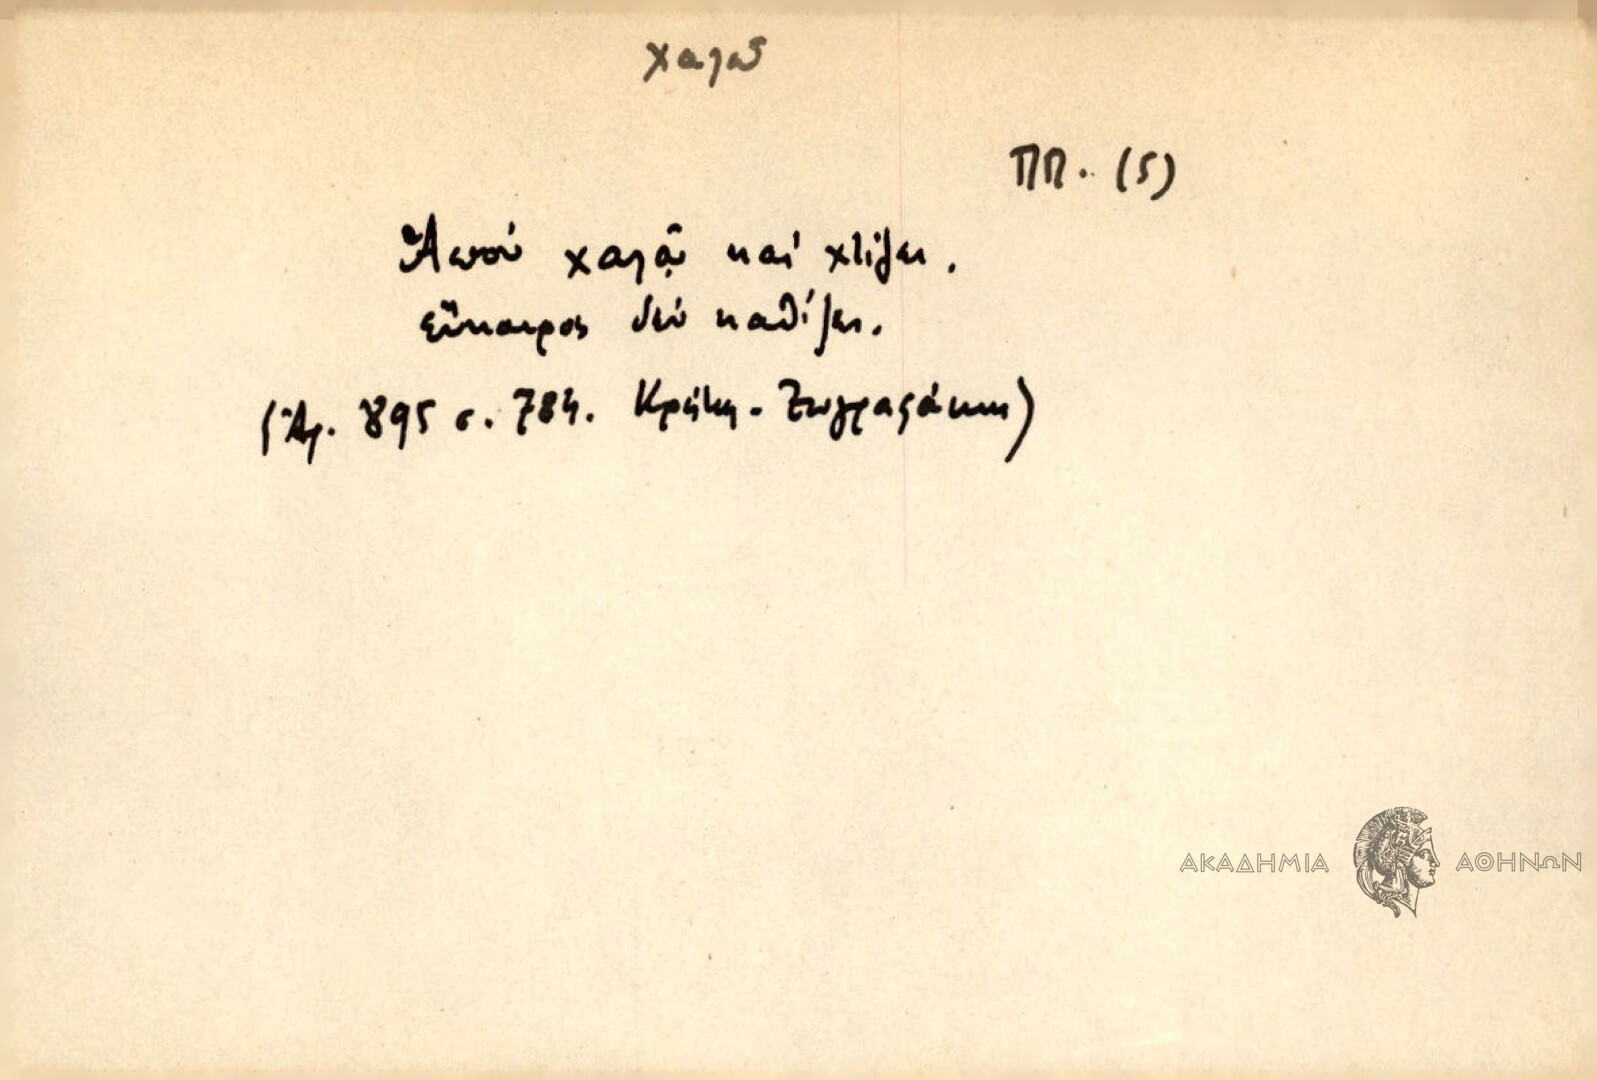 χαλῶ
ΠΠ. (5)
Ἀποὺ χαλᾷ καὶ χτίζει.
εὔκαιρος δὲν καθίζει.
(Ἀρ. 895 σ. 784. Κρήτη - Ζωγραφάκης)
ΑΚΑΔΗΜΙΑ ΑΘΗΝΩΝ